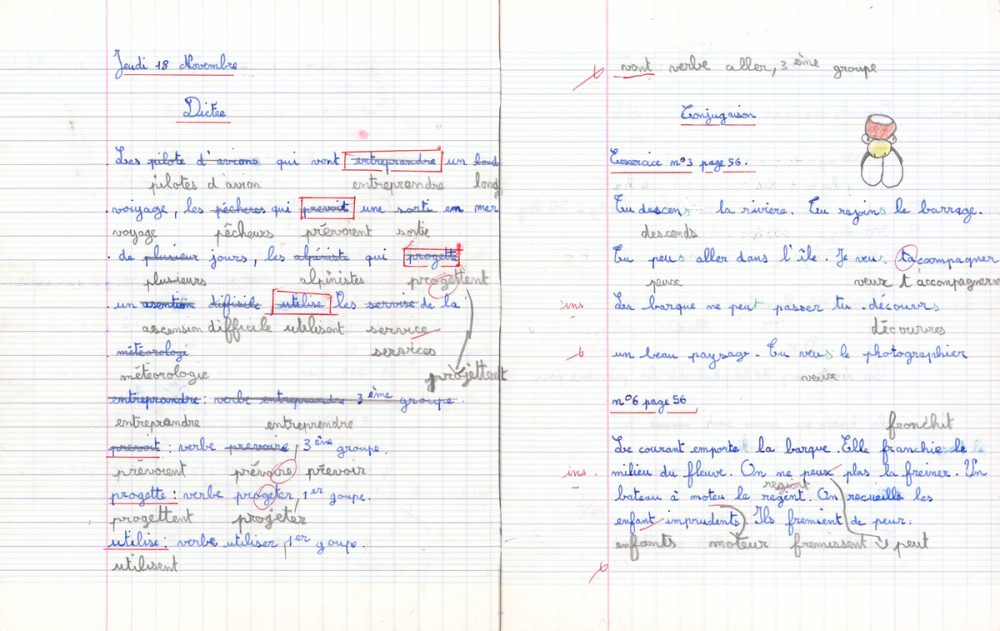 Jeudi 18 Novembre
Dictée
Les pilote d'avions qui vont entreprandre un
pilotes d'avion entreprendre long
voiyage, les pécheres qui prevoit une sorti en mer
voyage pêcheurs prévoient sortie
de plusieur jours, les alpiniste qui progett
plusieurs alpinistes progettent
un asention difisile utilise les servise de la
ascension difficile utilisent service
météorologi services
météorologie projettent
entreprandre : verbe entreprandre 3ème groupe.
entreprandre entreprendre
prevoit : verbe prevoire, 3ème groupe.
prévoient prévoire prévoir
progette : verbe progeter, 1er goupe.
progettent projeter
utilise : verbe utiliser, 1er goupe.
utilisent
vont verbe aller, 3ème groupe
Conjugaison
Exercice n°3 page 56.
Tu descens la riviere. Tu rejoins le barrage.
descends
Tu peus aller dans l'île. Je veus tacoompagner
peux veux t'accompagner
ins La barque ne peut passer tu découvrs
découvres
un beau paysage. Tu veus le photographier
veux
n°6 page 56
franchit
Le courant emporte la barque. Elle franchie le
ins. milieu du fleuve. On ne peux plus la freiner. Un
bateau à moteu la regint. On recueille les
enfant imprudents. Ils fremient de peur.
enfants moteur fremissent peut